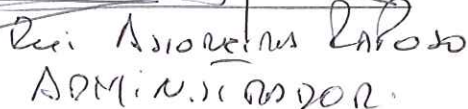 Rui Assoreira Raposo
ADMINISTRADOR.